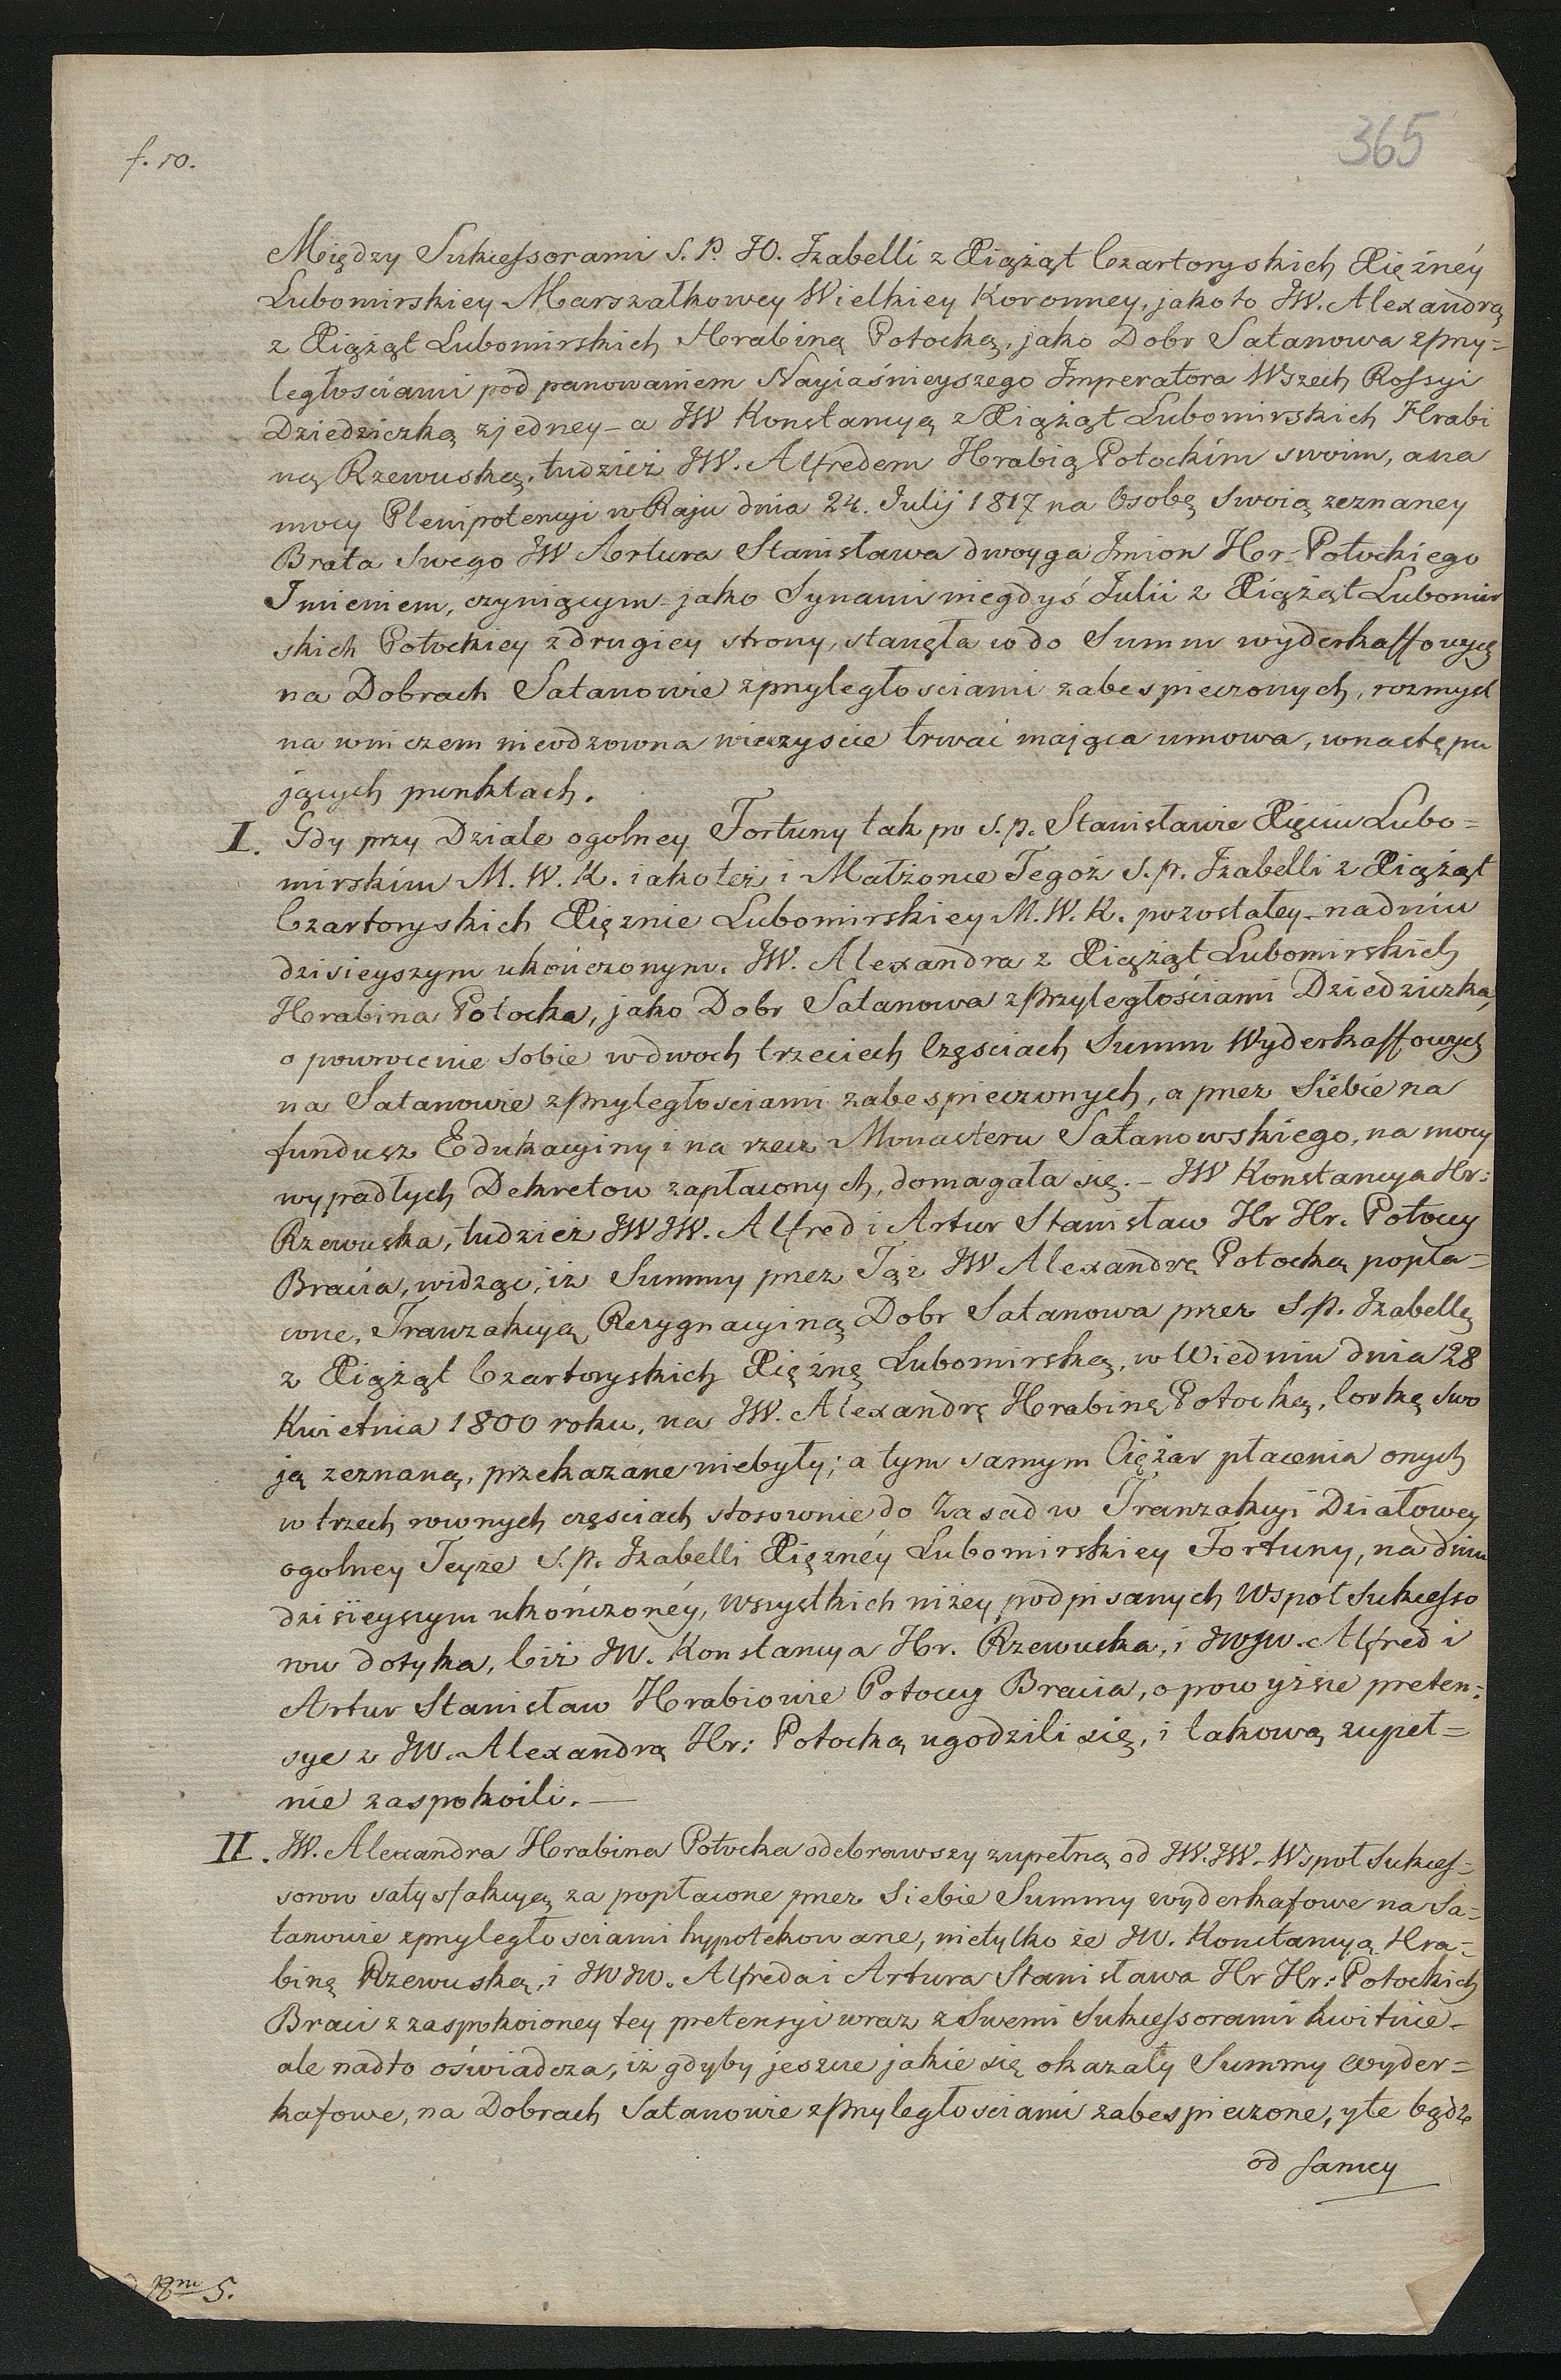 f. 10.
365
Między Sukcessorami S. P. JO. Izabelli z Xiążąt Czartoryskich Xiężnéy
Lubomirskiey Marszałkowey Wielkiey Koronney, jako to JW. Alexandrą
z Xiążąt Lubomirskich Hrabiną Potocką, jako Dobr Satanowa z przy=
ległosciami pod panowaniem Nayiaśnieyszego Imperatora Wszech Rossyi
Dziedziczką z jedney – a JW Konstancyą z Xiążąt Lubomirskich Hrabi
ną Rzewuską, tudzież JW. Alfredem Hrabią Potockim swoim, a na
mocy Plenipotencyi w Raju dnia 24. Julij 1817 na Osobę Swoią zeznaney
Brata Swego JW Artura Stanisława dwoyga Imion Hr. Potockiego
Imieniem, czyniącym – jako Synami niegdyś Julii z Xiążąt Lubomir
skich Potockiey z drugiey strony, stanęła co do Summ wyderkaffowych
na Dobrach Satanowie z przyległosciami zabespieczonych, rozmysl
na w niczem nieodzowna wieczyscie trwać mająca umowa, w następu
jących punktach.
I. Gdy przy Dziale ogolney Fortuny tak po s. p. Stanisławie Xięciu Lubo=
mirskim M. W. K. iako też i Małżonce Tegoż s. p. Izabelli z Xiążąt
Czartoryskich Xiężnie Lubomirskiey M. W. K. pozostałey – na dniu
dzisieyszym ukończonym. JW. Alexandra z Xiążąt Lubomirskich
Hrabina Potocka, jako Dobr Satanowa z Przyległościami Dziedziczka,
o powrocenie sobie w dwoch trzeciech Częsciach Summ Wyderkaffowych
na Satanowie z Przyległosciami zabespieczonych, a przez Siebie na
fundusz Edukacyiny i na rzecz Monasteru Satanowskiego, na mocy
wypadłych Dekretow zapłaconych, domagała się. – JW Konstancya Hr:
Rzewuska, tudzież JWJW. Alfred i Artur Stanisław Hr Hr. Potoccy
Bracia, widząc, iż Summy przez Tąż JW Alexandrę Potocką popła=
cone, Tranzakcyą Rezygnacyiną Dobr Satanowa przez S. p. Izabellę
z Xiążąt Czartoryskich Xiężnę Lubomirską, w Wiedniu dnia 28
Kwietnia 1800 roku, na JW. Alexandrę Hrabinę Potocką, Corkę Swo
ją zeznaną, przekazane niebyły; a tym samym Ciężar płacenia onych
w trzech rownych częsciach stosownie do Zasad w Tranzakcyi Działowey
ogolney Teyże s. p. Izabelli Xiężnéy Lubomirskiey Fortuny, na dniu
dzisieyszym ukończonéy, wszystkich niżey podpisanych Wspoł Sukcesso
row dotyka, Ciż JW. Konstancya Hr. Rzewuska, i JWJW. Alfred i
Artur Stanisław Hrabiowie Potoccy Bracia, o powyższe preten:
sye z JW. Alexandrą Hr: Potocką ugodzili się, i takową zupeł=
nie zaspokoili. –
II. JW. Alexandra Hrabina Potocka odebrawszy zupełną od JW. JW. Wspoł Sukces=
sorow satysfakcyą za popłacone przez Siebie Summy wyderkafowe na Sa=
tanowie z przyległosciami hypotekowane, nietylko że JW. Konstancyą Hra=
binę Rzewuską, i JWJW. Alfreda i Artura Stanisława Hr Hr: Potockich
Braci z zaspokoioney tey pretensyi wraz z Swemi Sukcessorami kwituie –
ale nadto oświadcza, iż gdyby jeszcze jakie się okazały Summy wyder=
kafowe, na Dobrach Satanowie z Przyległosciami zabespieczone, y te bądz
od samey
5.